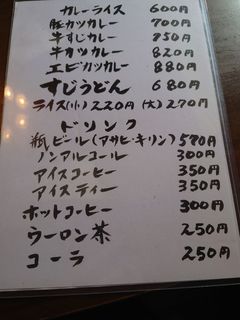 カレーライス 600円
豚カツカレー 700円
牛すじカレー 850円
牛カツカレー 820円
エビカツカレー 880円
すじうどん 680円
ライス(小) 220円 (大) 270円
ドリンク
瓶ビール(アサヒ・キリン) 580円
ノンアルコール 300円
アイスコーヒー 350円
アイスティー 350円
ホットコーヒー 300円
ウーロン茶 250円
コーラ 250円